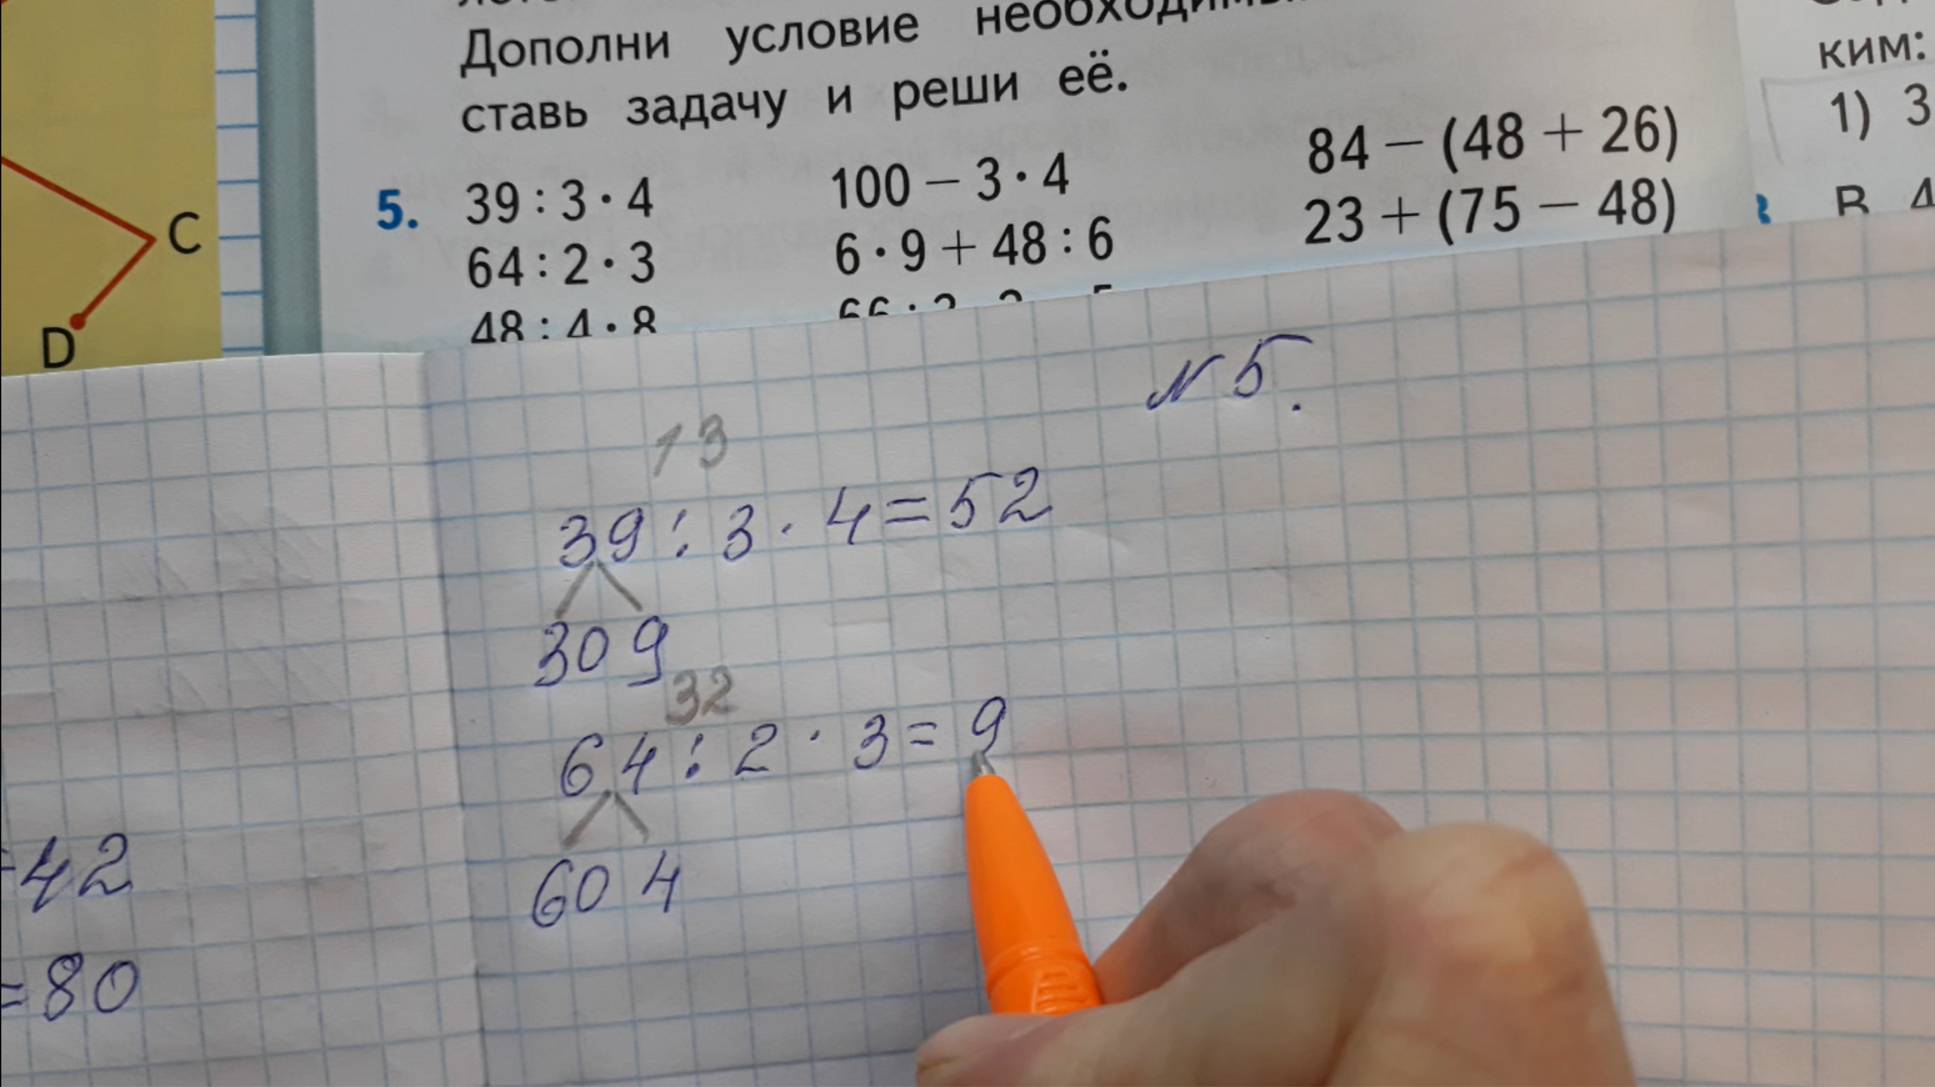 Дополни условие
ставь задачу и реши её.
ким:
1) 3
5. 39 : 3 · 4
64 : 2 · 3
48 : 4 · 8
100 − 3 · 4
6 · 9 + 48 : 6
84 − (48 + 26)
23 + (75 − 48)
В 4
C
D
N 5.
13
39 : 3 · 4 = 52
30 9
32
64 : 2 · 3 = 9
60 4
=42
=80